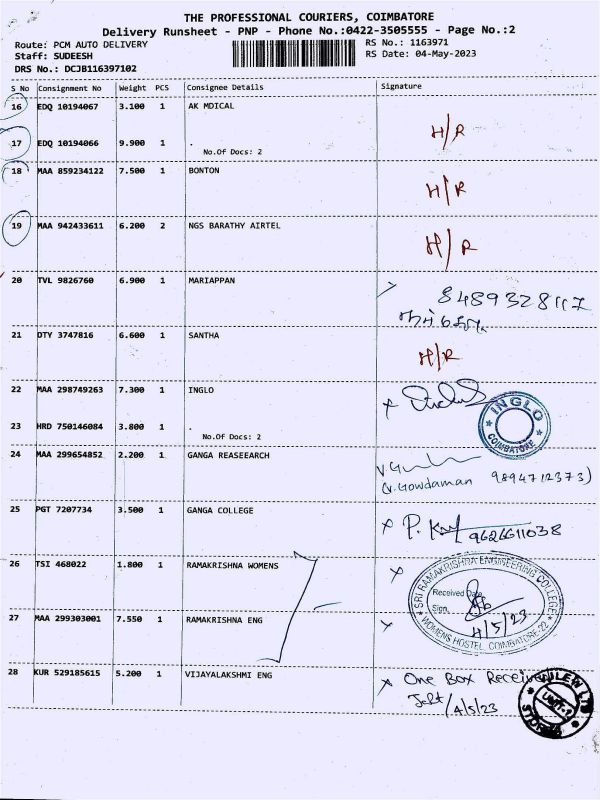 THE PROFESSIONAL COURIERS, COIMBATORE
Delivery Runsheet - PNP - Phone No.:0422-3505555 - Page No.:2
Route: PCM AUTO DELIVERY
RS No.: 1163971
Staff: SUDEESH
RS Date: 04-May-2023
DRS No.: DCJB116397102
S No Consignment No Weight PCS Consignee Details Signature
16 EDQ 10194067 3.100 1 AK MDICAL
H/R
17 EDQ 10194066 9.900 1 .
No.Of Docs: 2
18 MAA 859234122 7.500 1 BONTON
H/R
19 MAA 942433611 6.200 2 NGS BARATHY AIRTEL
H/R
20 TVL 9826760 6.900 1 MARIAPPAN
8489328117
21 DTY 3747816 6.600 1 SANTHA
H/R
22 MAA 298749263 7.300 1 INGLO
INGLO
COIMBATORE
23 HRD 750146084 3.800 1 .
No.Of Docs: 2
24 MAA 299654852 2.200 1 GANGA REASEEARCH
(V. Gowdaman 9894712373)
25 PGT 7207734 3.500 1 GANGA COLLEGE
9626611038
26 TSI 468022 1.800 1 RAMAKRISHNA WOMENS
SRI RAMAKRISHNA ENGINEERING COLLEGE
Received Date
Sign.
4/5/23
WOMENS HOSTEL, COIMBATORE-22
27 MAA 299303001 7.550 1 RAMAKRISHNA ENG
28 KUR 529185615 5.200 1 VIJAYALAKSHMI ENG
One Box Received
4/5/23